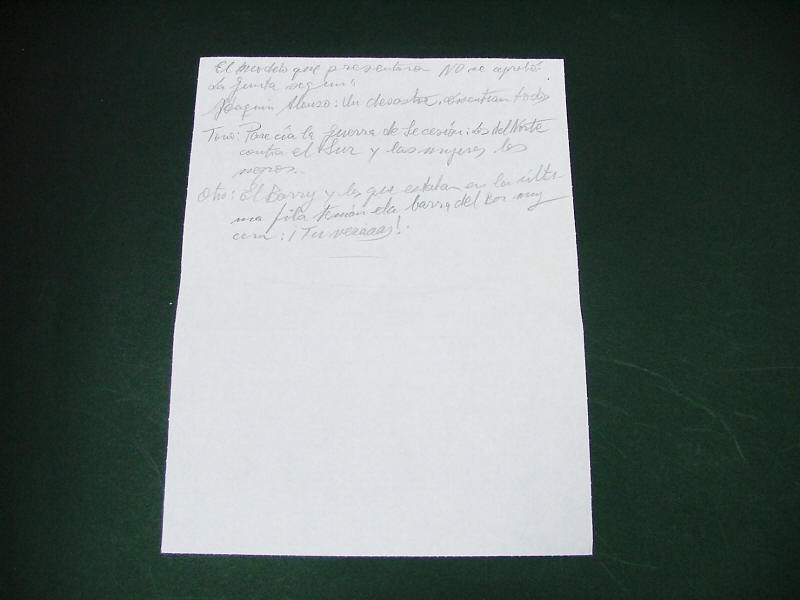 El modelo que presentaron NO se aprobó
La Junta según
Joaquin Alonso: Un desastre, consentian todo
Tono: Parecía la Guerra de Secesión: los del Norte
contra el Sur y las mujeres los
negros..
Otro: El Barry y los que estaban en la últi-
ma fila tenían la barra del bar muy
cerca: ¡Tu veráaas!.